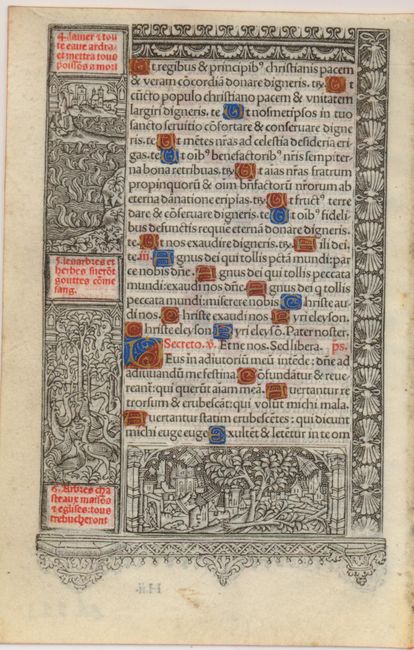 4. La mer ⁊ tou
te eaue ardra
et mettra tous
poissõs a mort
5. les arbres et
herbes suerõt
gouttes cõme
sang.
6. Arbres cha
steaux maisõs
⁊ eglises: tous
trebucheront
Ut regibus & principibꝰ christianis pacem
& veram cõcordiã donare digneris. ty. Ut
cũcto populo christiano pacem & vnitatem
largiri digneris. te. Ut nosmetipsos in tuo
sancto seruitio cõfortare & conseruare digne
ris. te. Ut mẽtes nr̃as ad celestia desideria eri
gas. te. Ut oibꝰ benefactoribꝰ nr̃is sempiter-
na bona retribuas. ty. Ut aias nr̃as fratrum
propinquorũ & oim bñfactorũ nr̃orum ab
eterna dãnatione eripias. ty. Ut fructꝰ terre
dare & cõseruare digneris. te. Ut oibꝰ fideli
bus defunctis requiẽ eternã donare digneris.
te. Ut nos exaudire digneris. ty. Fili dei.
te. iii. Agnus dei qui tollis pctã mundi: par
ce nobis dñe. Agnus dei qui tollis peccata
mundi: exaudi nos dñe. Agnus dei q tollis
peccata mundi: miserere nobis. Christe au-
di nos. Christe exaudi nos. Kyri eleyson.
Christe eleyson. Kyri eleysõ. Pater noster.
Secreto. v. Et ne nos. Sed libera. ps.
Deus in adiutoriũ meũ intẽde: dñe ad
adiuuandũ me festina. Cõfundãtur & reue-
reant: qui querũt aiam meã. Auertantur re
trorsum & erubescãt: qui volũt michi mala.
Auertantur statim erubescẽtes: qui dicunt
michi euge euge. Exultẽt & letẽtur in te om